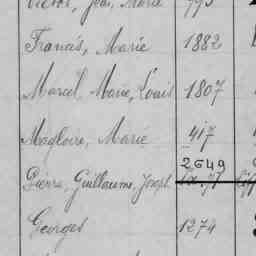 Victor, Jean, Marie 775
Francis, Marie 1882
Marcel, Marie, Louis 1807
Magloire, Marie 417
2649
Pierre, Guillaume, Joseph
Georges 1274